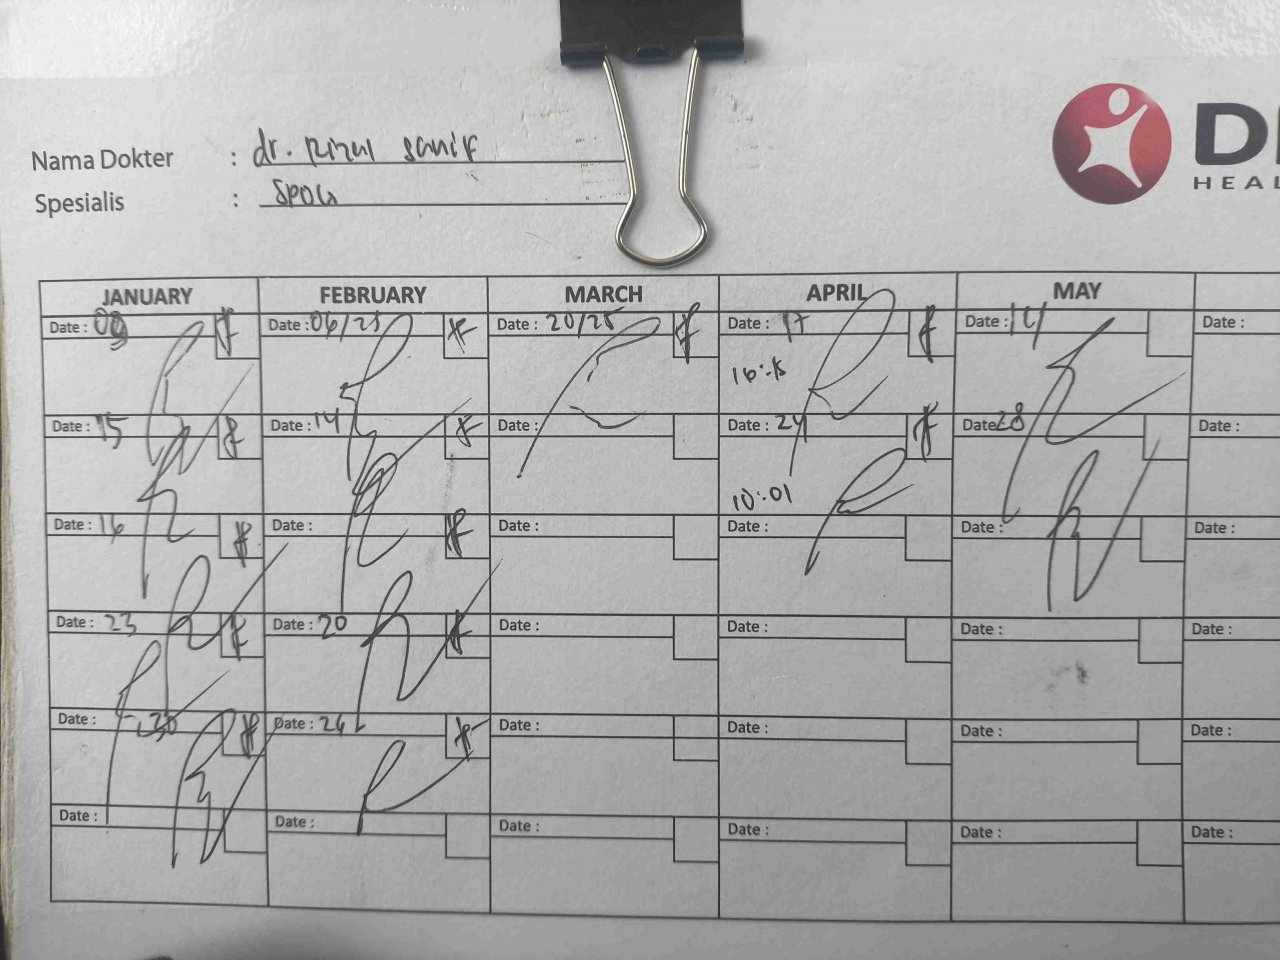 Nama Dokter : dr. Rizal Sanif
Spesialis : SPOG
D
HEAL
JANUARY FEBRUARY MARCH APRIL MAY
Date : 09 Date : 06/25 Date : 20/25 Date : 17 Date : 14 Date :
16:15
Date : 15 Date : 14 Date : Date : 24 Date 28 Date :
10:01
Date : 16 Date : Date : Date : Date : Date :
Date : 23 Date : 20 Date : Date : Date : Date :
Date : 30 Date : 26 Date : Date : Date : Date :
Date : Date : Date : Date : Date : Date :